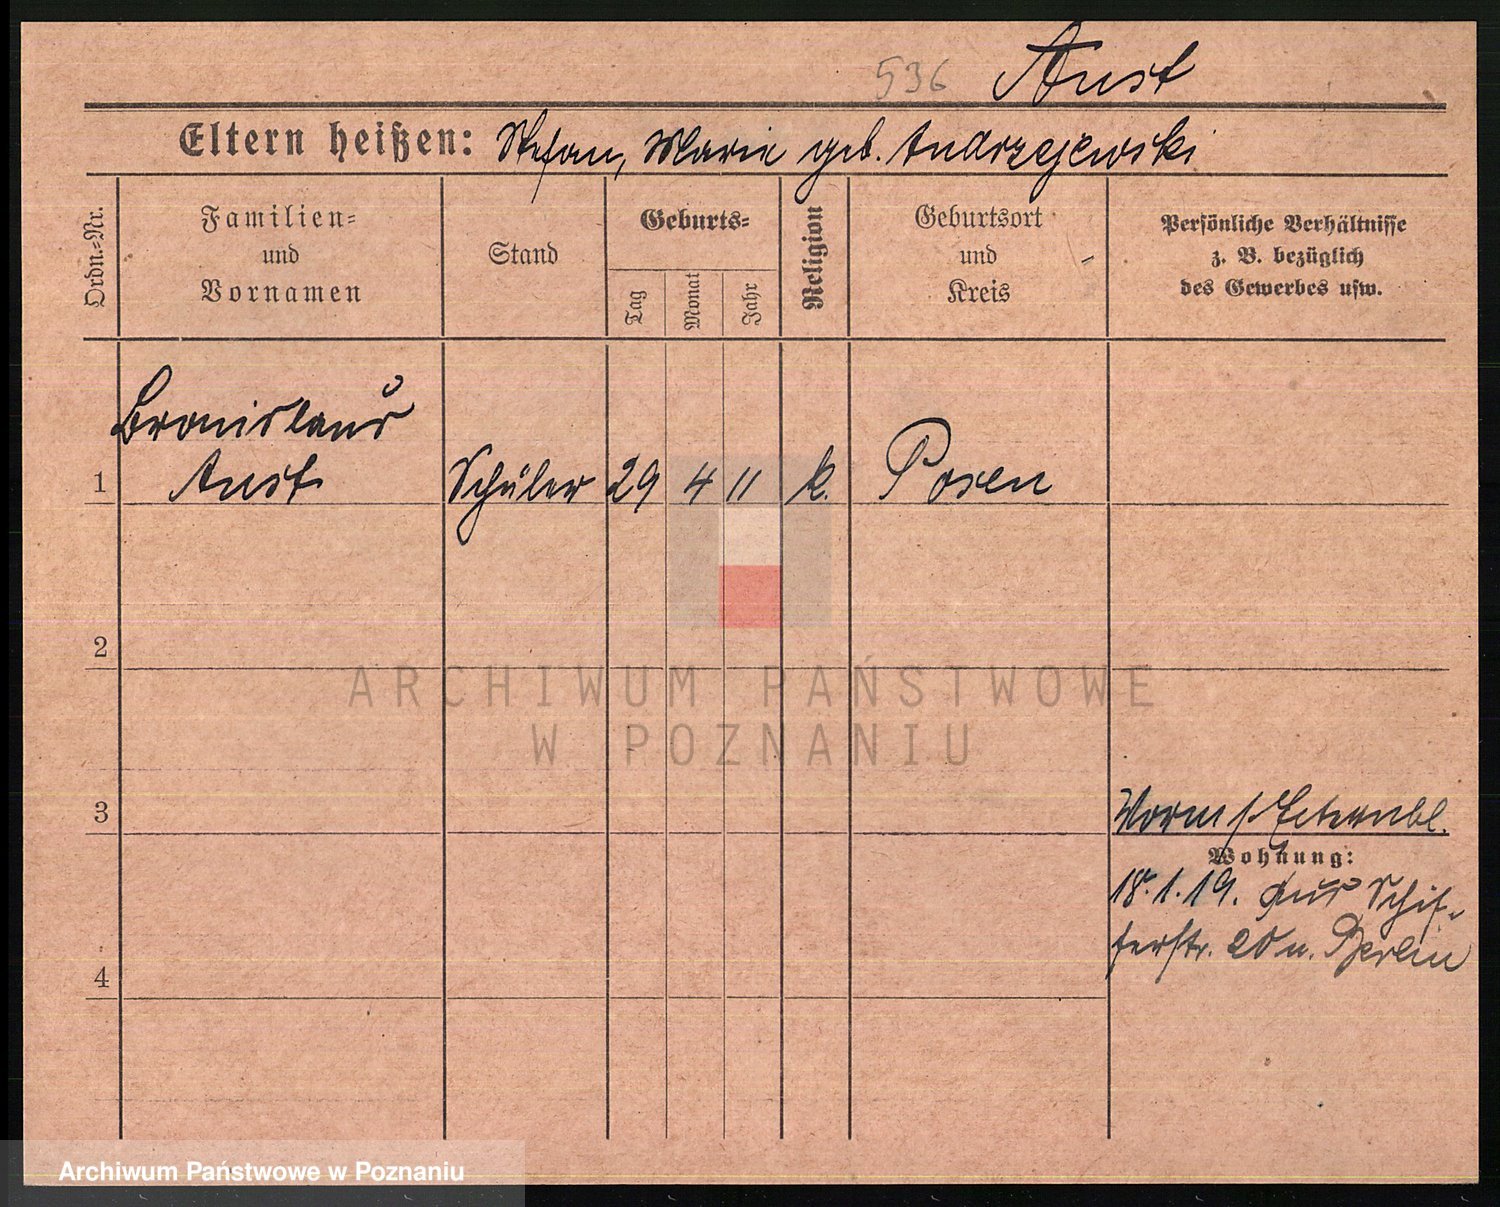 536 Aust
Eltern heißen: Stefan, Marie geb. Andrzejewski
Ordn.-Nr.
Familien-
und
Vornamen
Stand
Geburts-
Tag
Monat
Jahr
Religion
Geburtsort
und
Kreis
Persönliche Verhältnisse
z. B. bezüglich
des Gewerbes usw.
Bronislaus
1 Aust Schüler 29 4 11 k. Posen
2
3
Worm s.
4
Wohnung:
18.1.19. aus Schif-
ferstr. 20 n. Berlin
ARCHIWUM PAŃSTWOWE
W POZNANIU
Archiwum Państwowe w Poznaniu